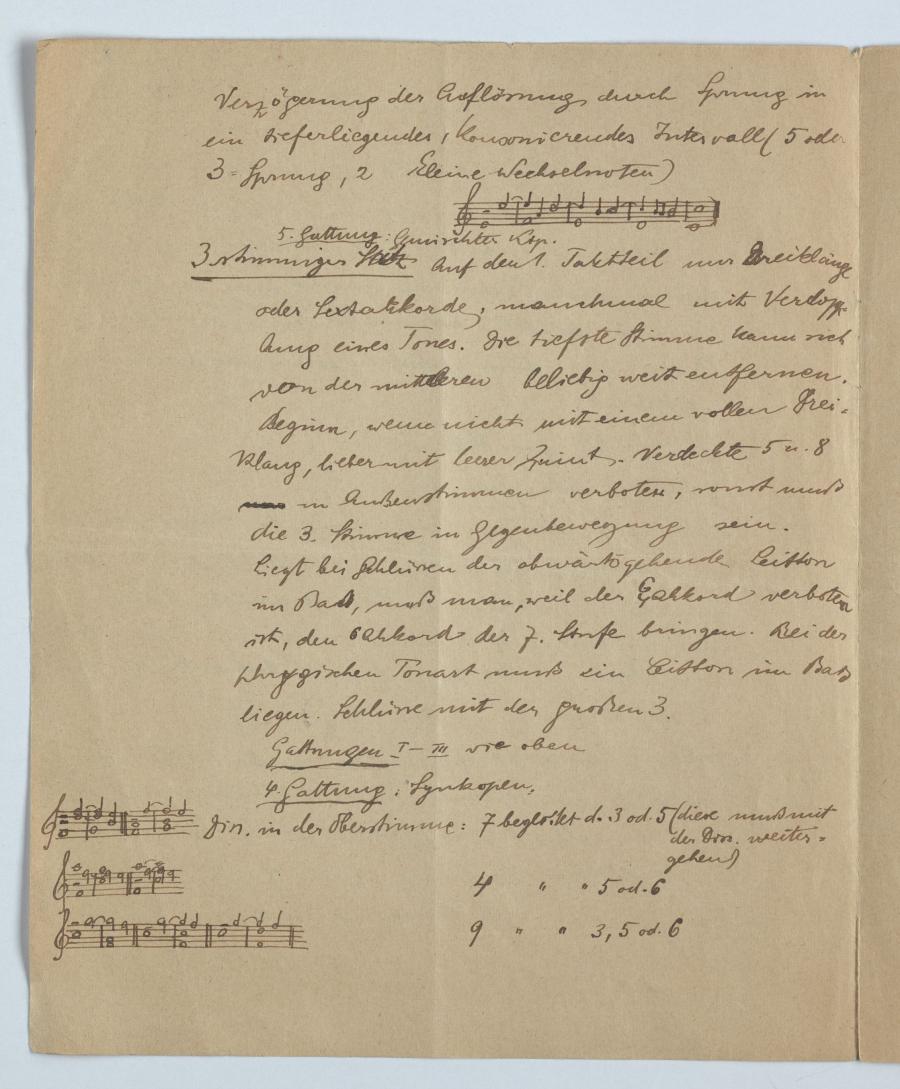 Verzögerung der Auflösung durch Sprung in
ein tieferliegendes, konsonierendes Intervall (5 oder
3=Sprung, 2 kleine Wechselnoten)
5. Gattung: Gemischter Ktp.
3 stimmiger Satz Auf dem 1. Taktteil nur Dreiklänge
oder Sextakkorde, manchmal mit Verdopp-
lung eines Tones. Die tiefste Stimme kann sich
von der mittleren beliebig weit entfernen.
Beginn, wenn nicht mit einem vollen Drei-
klang, lieber mit leerer Quint. Verdeckte 5 u. 8
in Außenstimmen verboten, sonst muß
die 3. Stimme in Gegenbewegung sein.
Liegt bei Schlüssen der abwärtsgehende Leitton
im Baß, muß man, weil der akkord verboten
ist, den 6 akkord der 7. Stufe bringen. Bei der
phrygischen Tonart muß ein Leitton im Baß
liegen. Schlüsse mit der großen 3.
Gattungen I-III wie oben
4. Gattung: Synkopen,
Diss. in der Oberstimme: 7 begleitet d. 3 od. 5 (diese muß mit
der Diss. weiter=
gehen)
4 " " 5 od. 6
9 " " 3, 5 od. 6